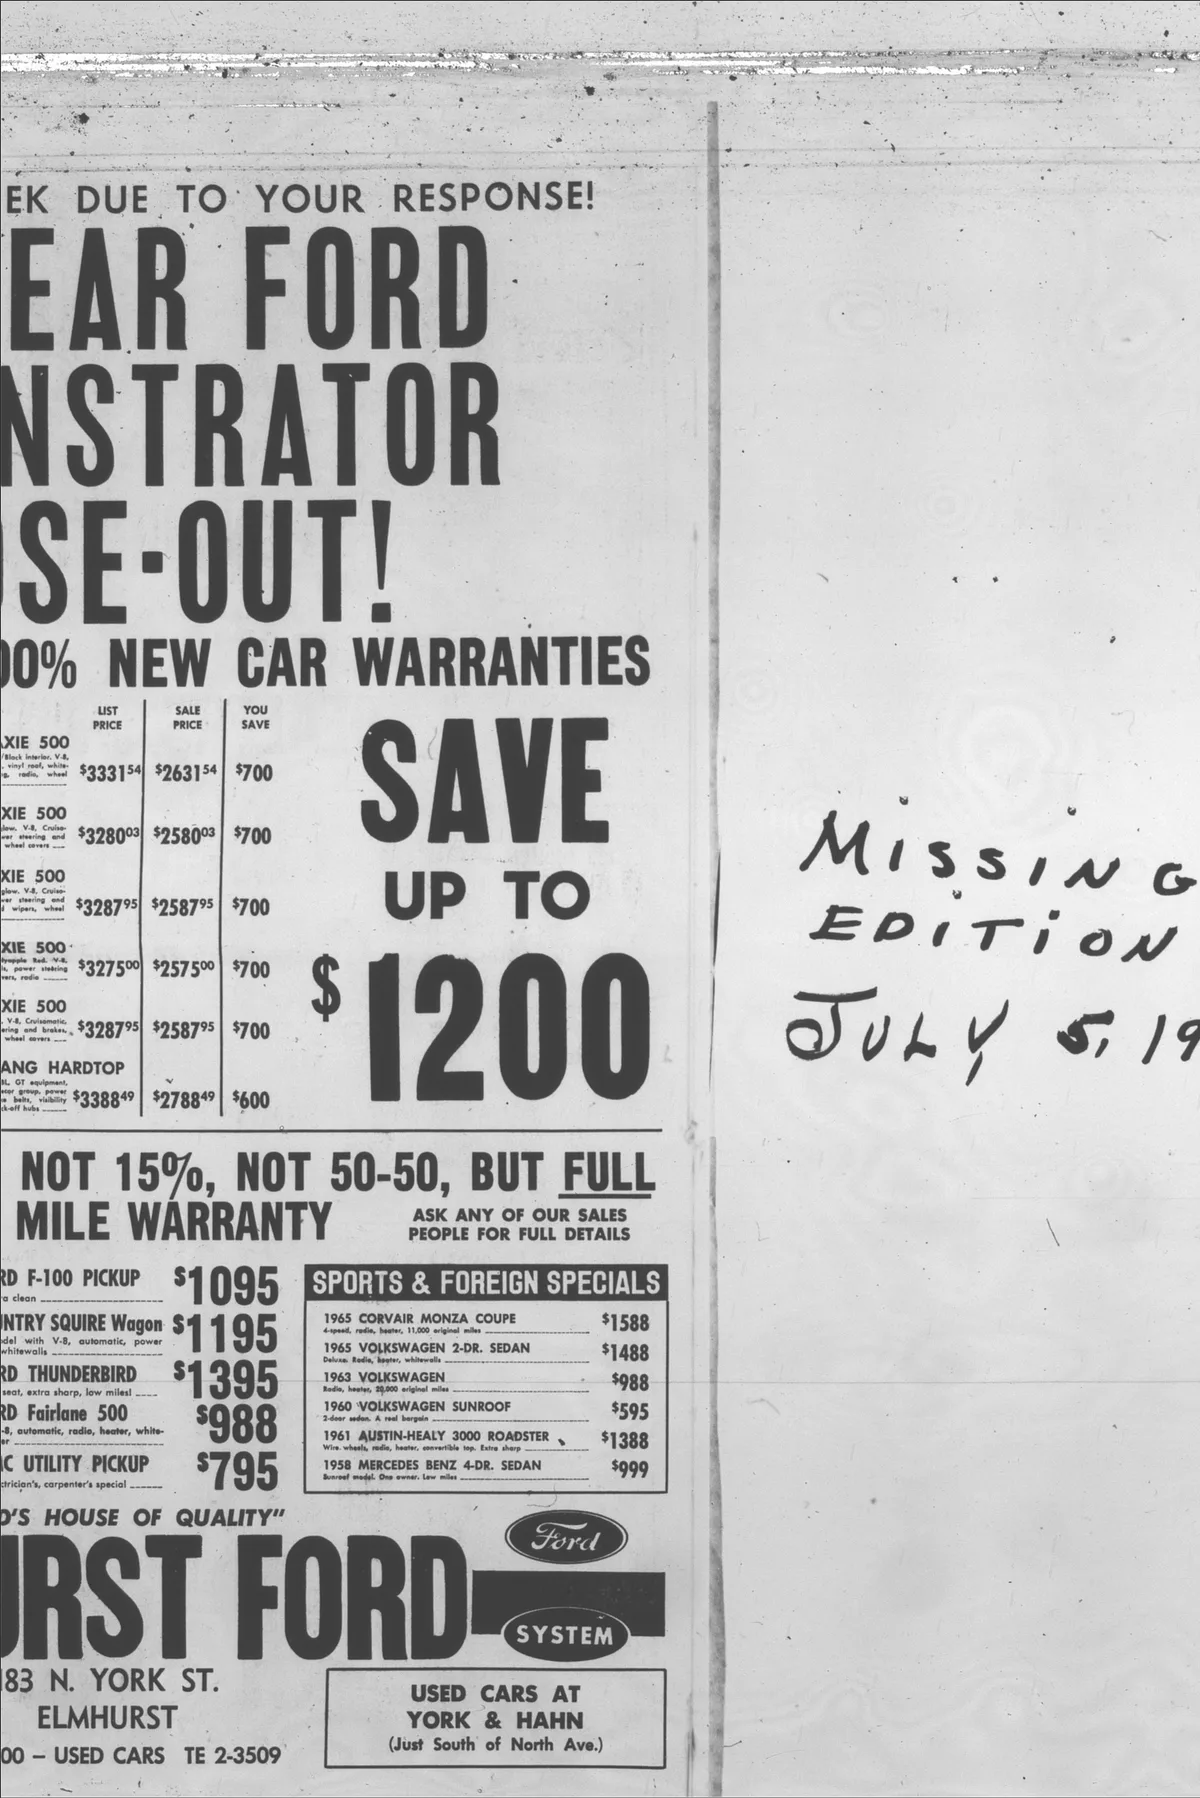 EK DUE TO YOUR RESPONSE!
EAR FORD
NSTRATOR
SE-OUT!
00% NEW CAR WARRANTIES
LIST PRICE SALE PRICE YOU SAVE
XIE 500
/Black interior. V-8,
, vinyl roof, white-
g, radio, wheel
$3331 54 $2631 54 $700
XIE 500
glow. V-8, Cruiso-
wer steering and
wheel covers
$3280 03 $2580 03 $700
XIE 500
glow. V-8, Cruiso-
wer steering and
d wipers, wheel
$3287 95 $2587 95 $700
XIE 500
Red. V-8,
ls, power steering
vers, radio
$3275 00 $2575 00 $700
XIE 500
V-8, Cruisomatic,
ering and brakes,
wheel covers
$3287 95 $2587 95 $700
ANG HARDTOP
BL. GT equipment,
group, power
belts, visibility
ck-off hubs
$3388 49 $2788 49 $600
SAVE
UP TO
$1200
NOT 15%, NOT 50-50, BUT FULL
MILE WARRANTY
ASK ANY OF OUR SALES
PEOPLE FOR FULL DETAILS
RD F-100 PICKUP $1095
a clean
NTRY SQUIRE Wagon $1195
del with V-8, automatic, power
whitewalls
RD THUNDERBIRD $1395
seat, extra sharp, low miles!
RD Fairlane 500 $988
-8, automatic, radio, heater, white-
er
C UTILITY PICKUP $795
ctrician's, carpenter's special
SPORTS & FOREIGN SPECIALS
1965 CORVAIR MONZA COUPE $1588
4-speed, radio, heater, 11,000 original miles
1965 VOLKSWAGEN 2-DR. SEDAN $1488
Deluxe. Radio, heater, whitewalls
1963 VOLKSWAGEN $988
Radio, heater, 20,000 original miles
1960 VOLKSWAGEN SUNROOF $595
2-door sedan. A real bargain
1961 AUSTIN-HEALY 3000 ROADSTER $1388
Wire wheels, radio, heater, convertible top. Extra sharp
1958 MERCEDES BENZ 4-DR. SEDAN $999
Sunroof model. One owner. Low miles
D'S HOUSE OF QUALITY"
URST FORD
Ford
SYSTEM
183 N. YORK ST.
ELMHURST
00 – USED CARS TE 2-3509
USED CARS AT
YORK & HAHN
(Just South of North Ave.)
MISSING
EDITION
JULY 5, 19